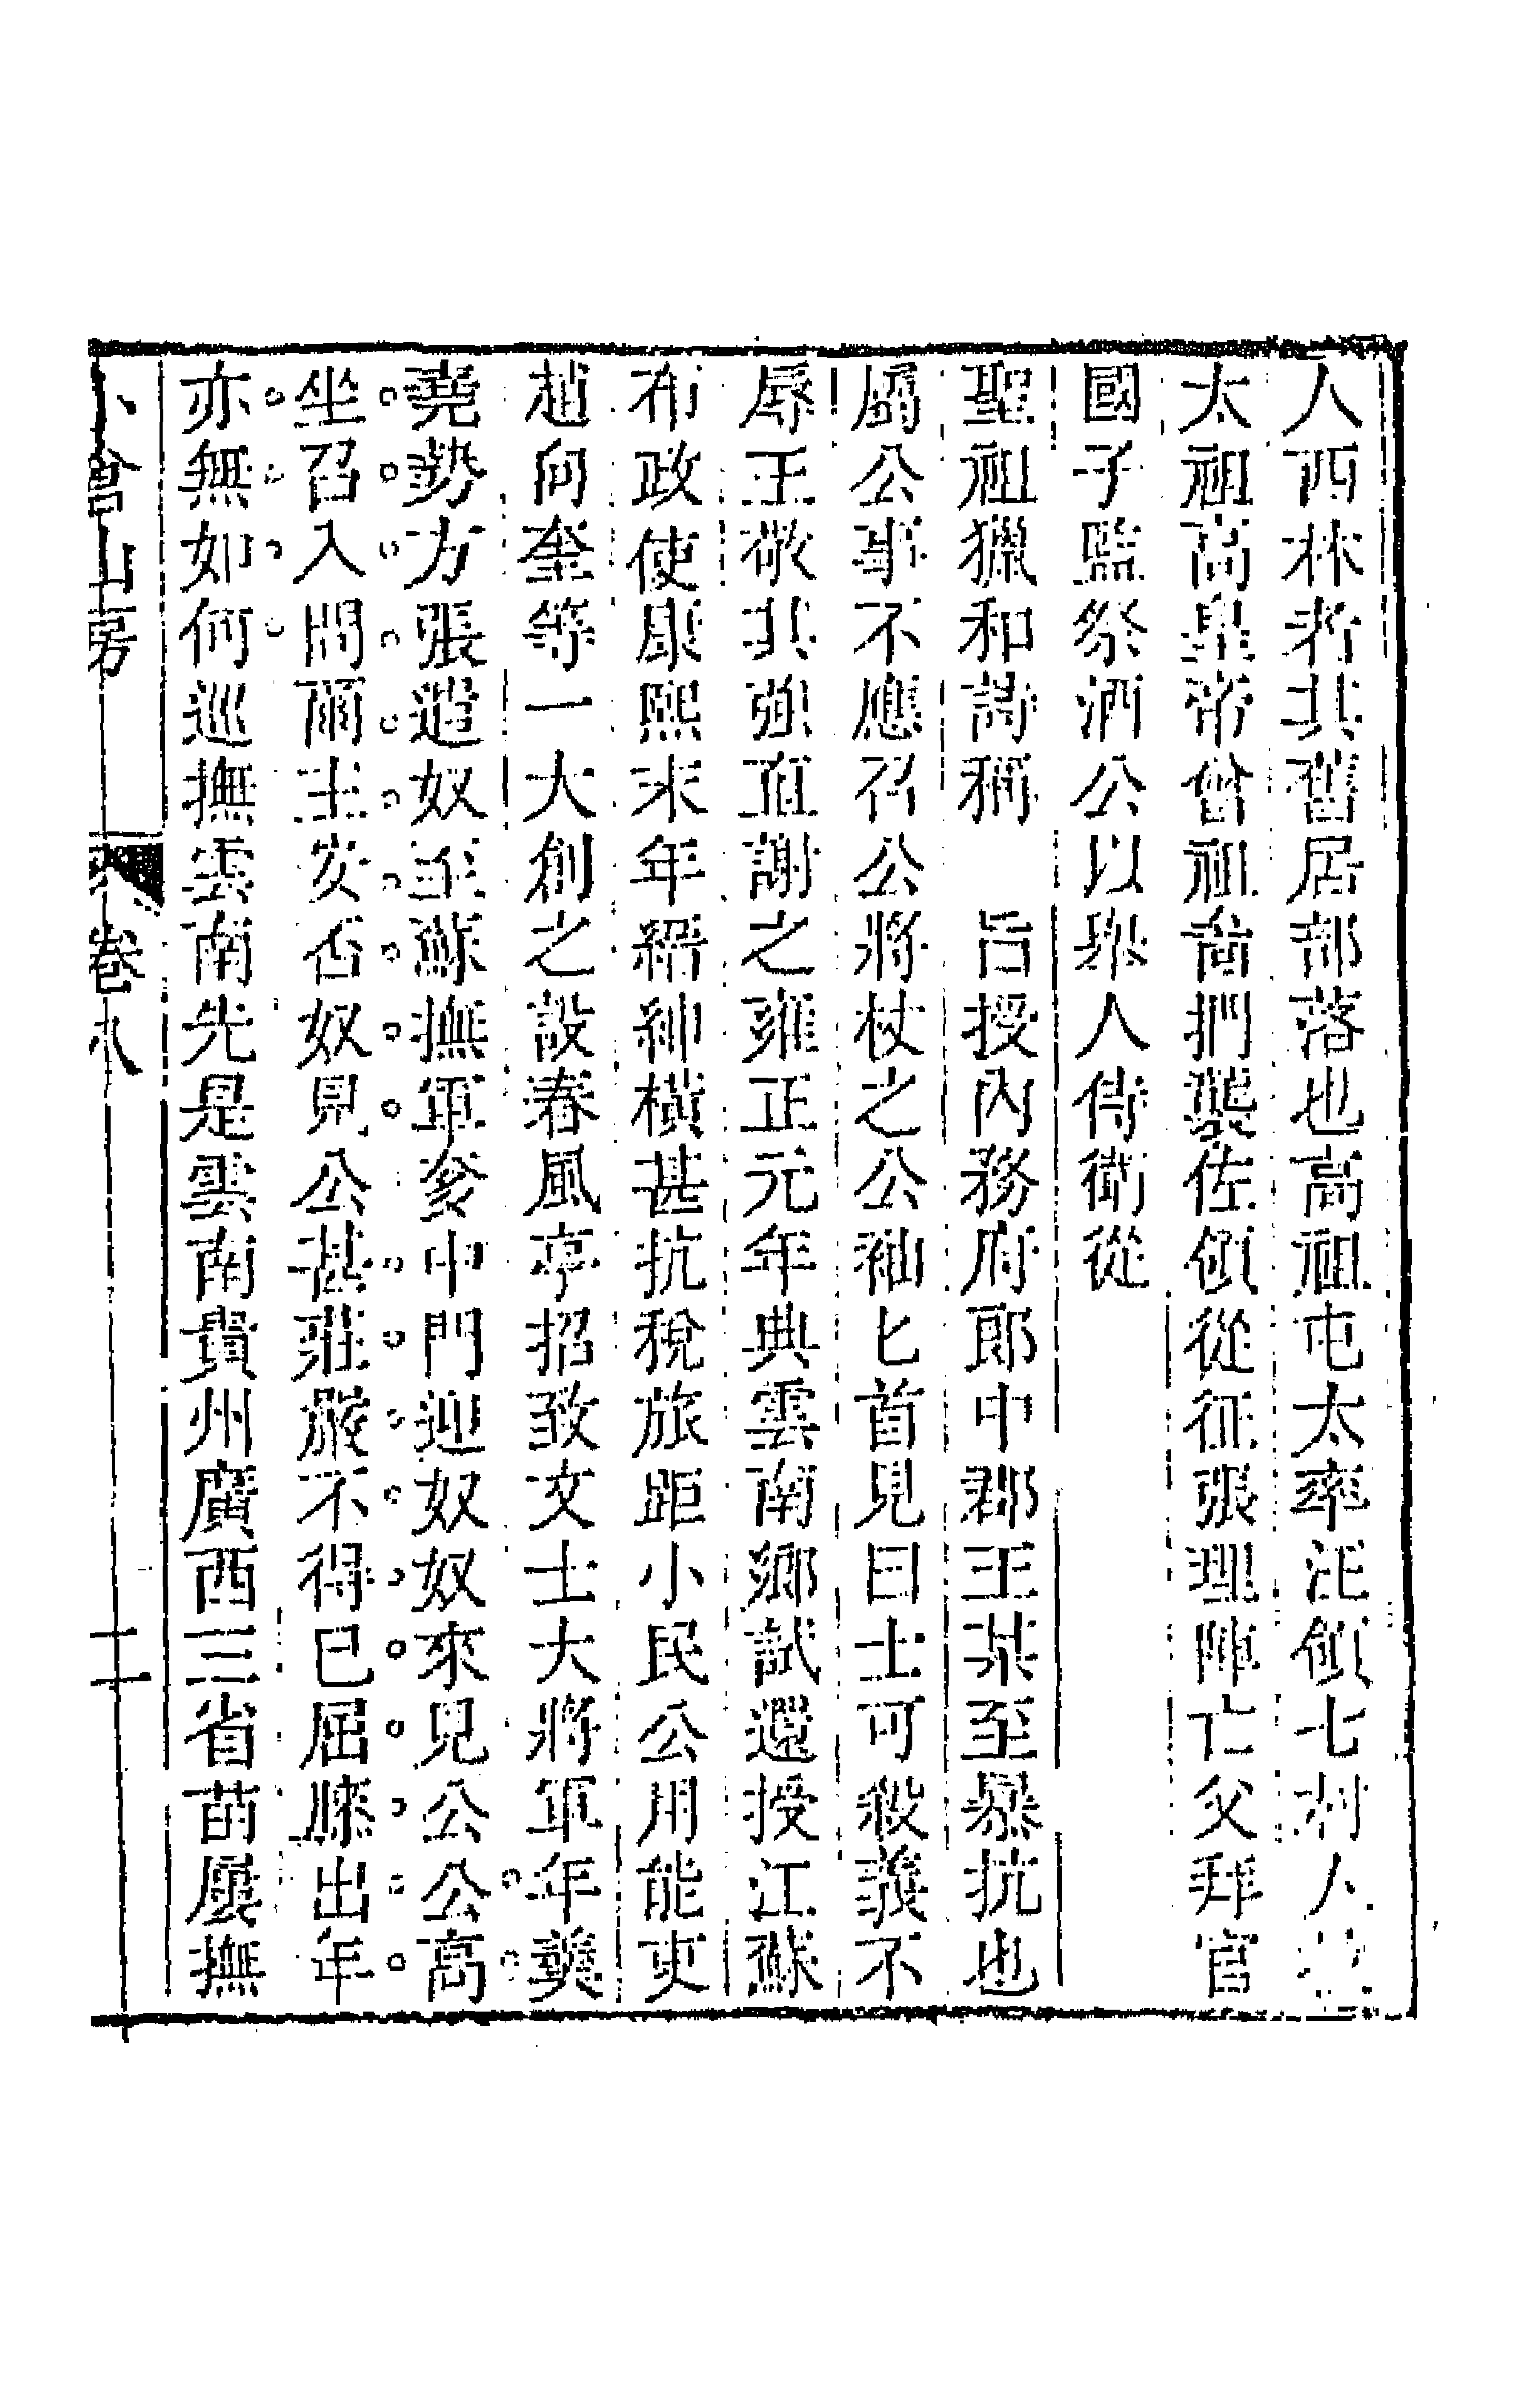 人西林者其舊居部落也高祖屯太率汪領七村人
太祖高皇帝曾祖啚捫襲佐領從征張理陣亡父拜官
國子監祭酒公以舉人侍衛從
聖祖獵和詩稱 旨授內務府郎中郡王某至暴抗也
屬公事不應召公將杖之公袖匕首見曰士可殺義不
辱王敬其強直謝之雍正元年典雲南鄉試還授江蘇
布政使康熙末年縉紳橫甚抗稅旅距小民公用能吏
趙向奎等一大創之設春風亭招致文士大將軍年羹
堯勢方張遣奴至蘇撫軍爹中門迎奴奴來見公公高
坐召入問爾主安否奴見公甚莊嚴不得已屈膝出年
亦無如何巡撫雲南先是雲南貴州廣西三省苗屢撫
小倉山房 卷八 二十